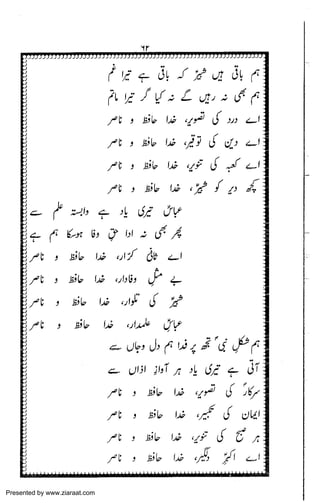 ۶۳
ہم باقی ہیں شبیرؑ کہ باقی ہے ترا غم
ہم بھی نہ رہیں گے نہ کیا گر ترا ماتم
اے درد کی تصویر، خدا حافظ و ناصر
اے دین کی توقیر، خدا حافظ و ناصر
اے کعبہ کی تنویر، خدا حافظ و ناصر
کچھ دیر کو شبیرؑ، خدا حافظ و ناصر
عباسؑ تیری یاد ہے وابستہ علم سے
پھر بھی نہ ادا حقِ وفا ہوسکا ہم سے
اے ثانی کرّار، خدا حافظ و ناصر
بے مثل وفادار، خدا حافظ و ناصر
شبیرؑ کی تلوار، خدا حافظ و ناصر
عباسِؑ علمدار، خدا حافظ و ناصر
ہم شکلِ نبیؐ تجھ پر فدا ہم دل و جاں سے
آتی ہے تیری یاد ہر آوازِ اذاں سے
سرکارؐ کی تصویر، خدا حافظ و ناصر
ایمان کی تکبیر، خدا حافظ و ناصر
ہر صبح کی تنویر، خدا حافظ و ناصر
اے اکبرؑ دلگیر، خدا حافظ و ناصر
Presented by www.ziaraat.com